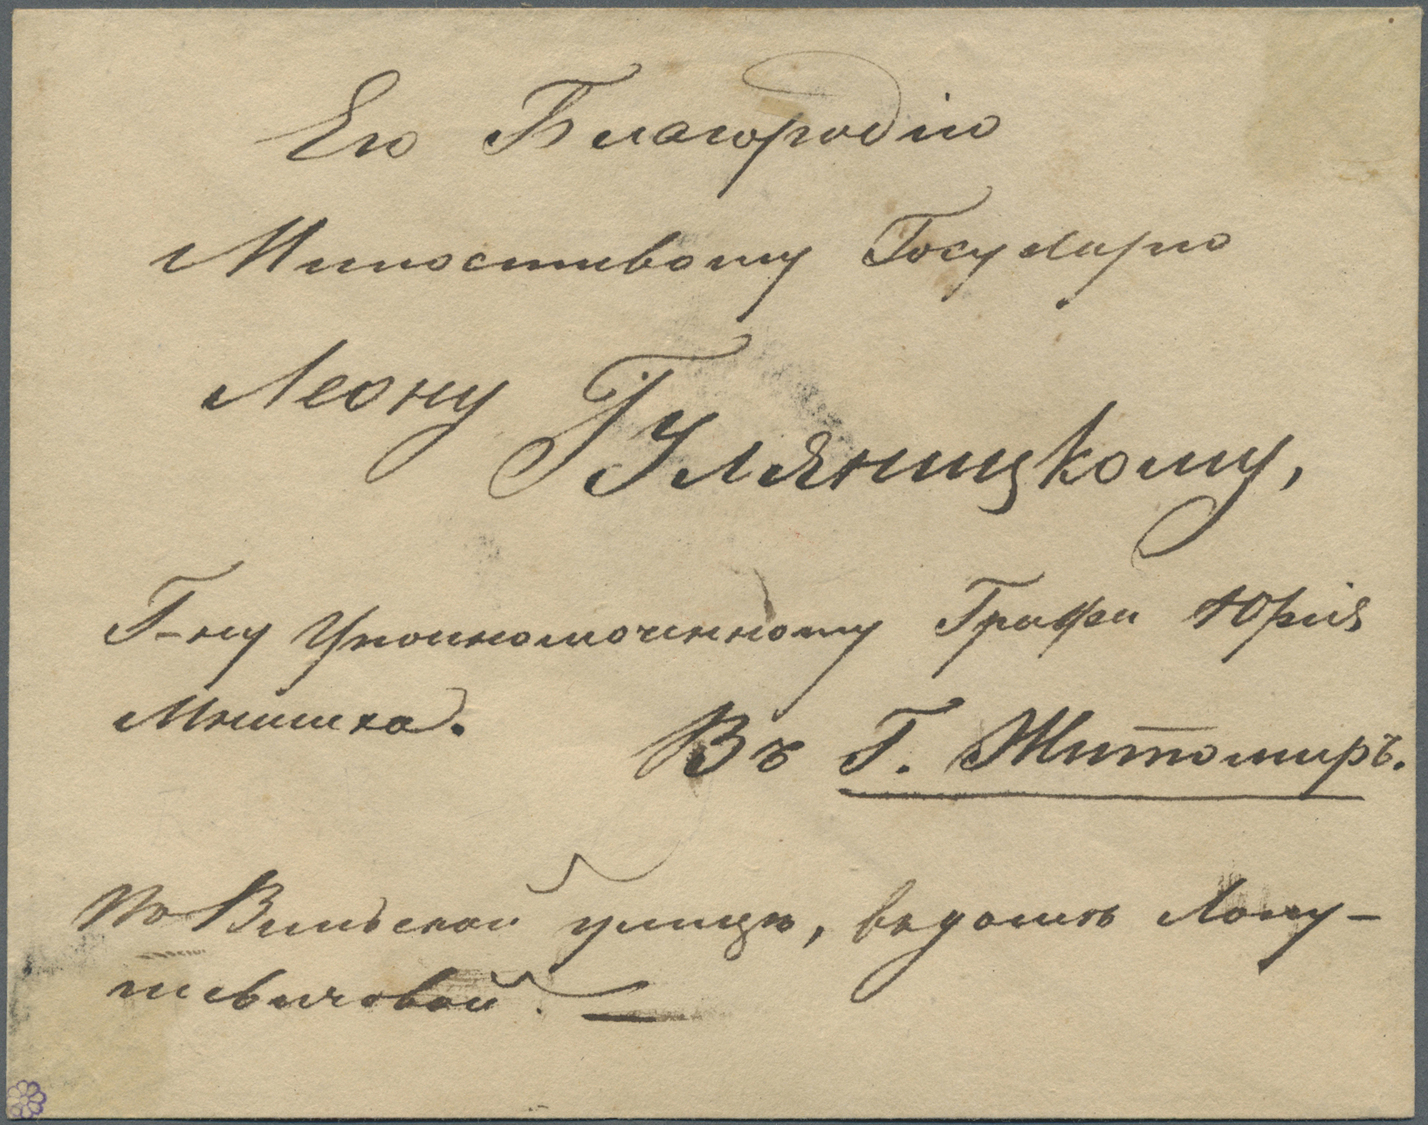 Его Благородію
Милостивому Государю
Леону Гуляницкому,
Г-ну Уполномоченному Графа Юрія
Мнишка.
Въ Г. Житомиръ.
По Вильской улицѣ, въ домѣ